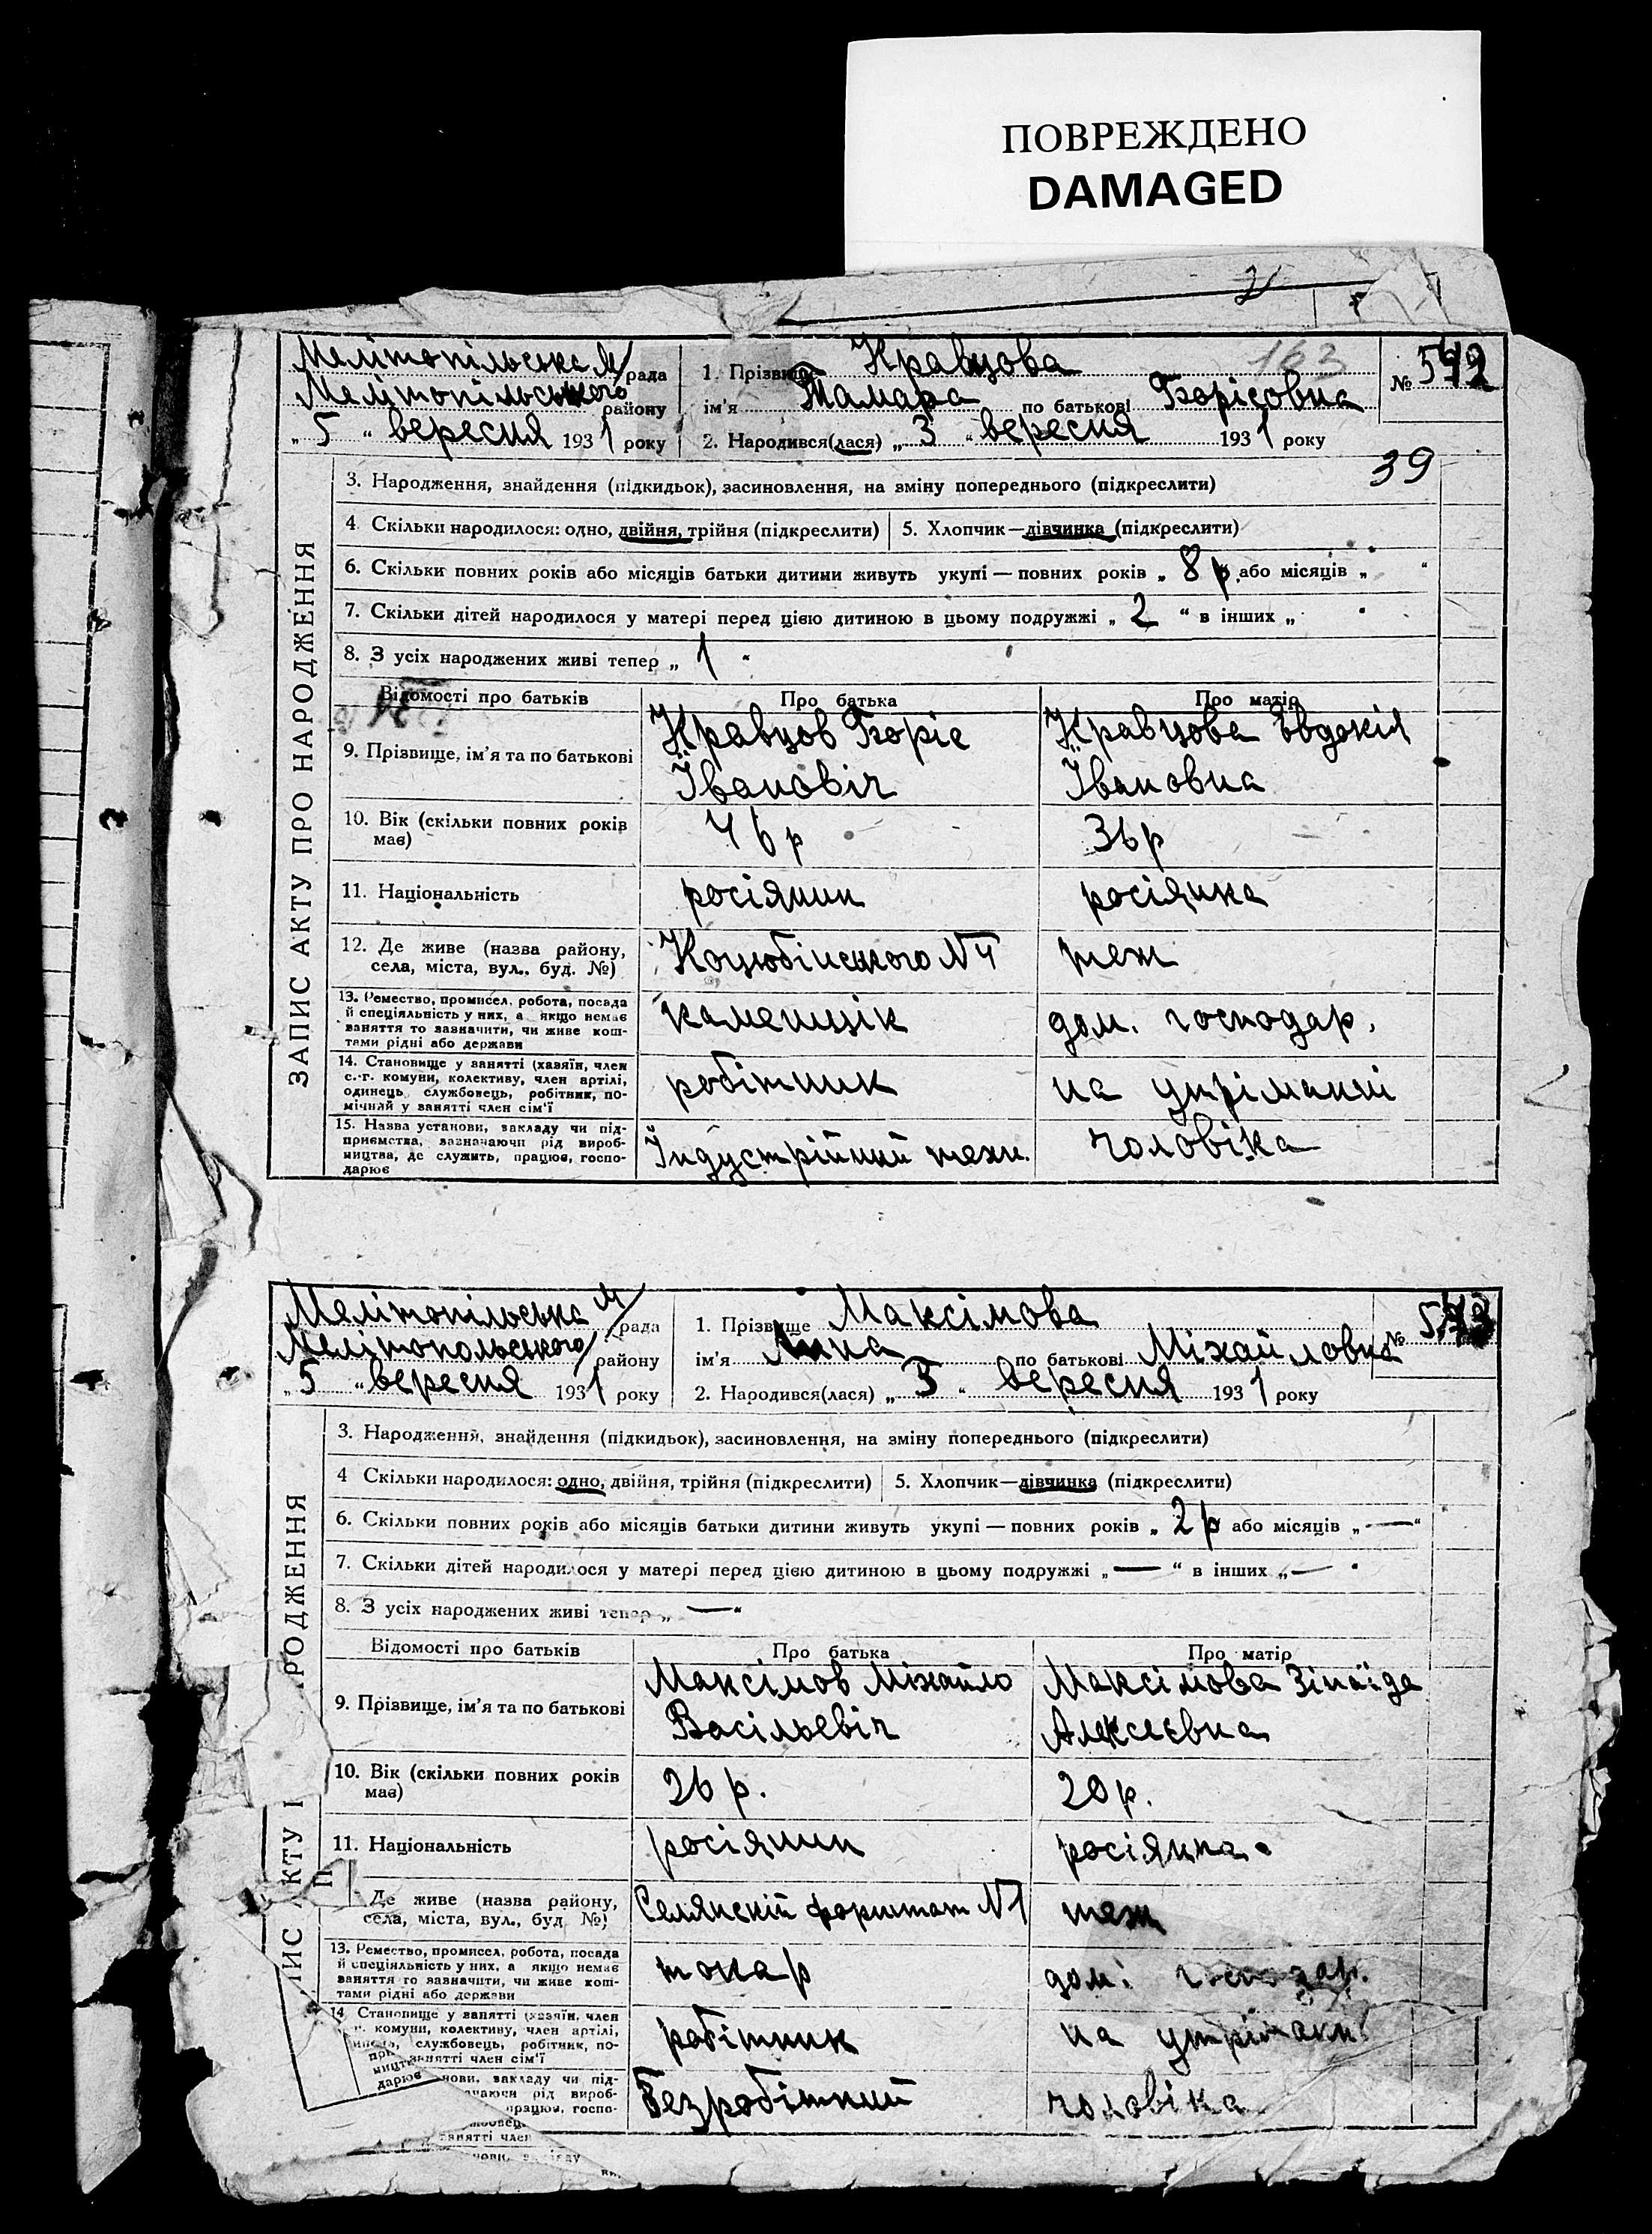 ПОВРЕЖДЕНО
DAMAGED
Мелітопільська м/рада
Мелітопільського району
„ 5 “ вересня 1931 року
1. Прізвище Кравцова 163
ім'я Тамара по батькові Борісовна
№ 572
2. Народився(лася) „ 3 “ вересня 1931 року
39
ЗАПИС АКТУ ПРО НАРОДЖЕННЯ
3. Народження, знайдення (підкидьок), засиновлення, на зміну попереднього (підкреслити)
4. Скільки народилося: одно, двійня, трійня (підкреслити) 5. Хлопчик—дівчинка (підкреслити)
6. Скільки повних років або місяців батьки дитини живуть укупі — повних років „ 8 р “ або місяців „ “
7. Скільки дітей народилося у матері перед цією дитиною в цьому подружжі „ 2 “ в інших „ “
8. З усіх народжених живі тепер „ 1 “
Відомості про батьків Про батька Про матір
9. Прізвище, ім'я та по батькові Кравцов Боріс Івановіч Кравцова Евдокія Івановна
10. Вік (скільки повних років має) 46 р 36 р
11. Національність росіянин росіянка
12. Де живе (назва району, села, міста, вул., буд. №) Коцюбінського №4 теж
13. Ремество, промисел, робота, посада й спеціяльність у них, а якщо немає заняття то зазначити, чи живе коштами рідні або держави каменщік дом. господар.
14. Становище у занятті (хазяїн, член с.-г. комуни, колективу, член артілі, одинець, службовець, робітник, помічний у занятті член сім'ї робітник на утріманні
15. Назва установи, закладу чи підприємства, зазначаючи рід виробництва, де служить, працює, господарює Індустрійний техн. чоловіка
Мелітопільська м/рада
Мелітопольського району
„ 5 “ вересня 1931 року
1. Прізвище Максімова
ім'я по батькові Міхайловна
№
2. Народився(лася) „ 3 “ вересня 1931 року
3. Народження, знайдення (підкидьок), засиновлення, на зміну попереднього (підкреслити)
4 Скільки народилося: одно, двійня, трійня (підкреслити) 5. Хлопчик—дівчинка (підкреслити)
6. Скільки повних років або місяців батьки дитини живуть укупі — повних років „ 2 р або місяців „ — “
7. Скільки дітей народилося у матері перед цією дитиною в цьому подружжі „ — “ в інших „ — “
8. З усіх народжених живі тепер „ — “
Відомості про батьків Про батька Про матір
9. Прізвище, ім'я та по батькові Максімов Міхайло Васільевіч Максімова Зінаїда Алексєєвна
10. Вік (скільки повних років має) 26 р. 20 р.
11. Національність росіянин росіянка
Де живе (назва району, села, міста, вул., буд. №) Селянскій форштат №1 теж
13. Ремество, промисел, робота, посада й спеціяльність у них, а якщо немає заняття то зазначити, чи живе коштами рідні або держави токар дом. господар.
14 Становище у занятті (хазяїн, член комуни, колективу, член артілі, службовець, робітник, по- занятті член сім'ї робітник на утріманні
закладу чи під- рід вироб- працює, госпо- безробітний чоловіка